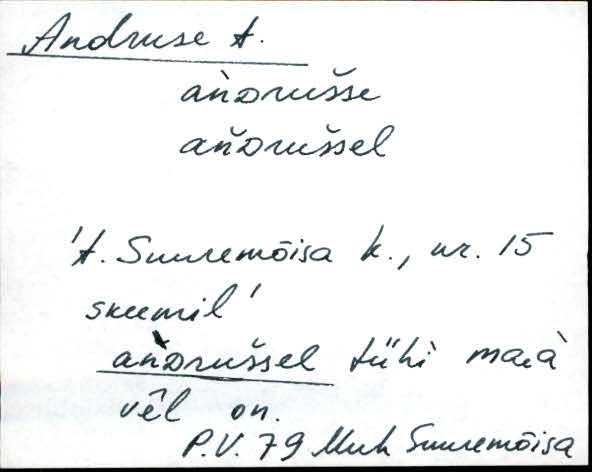 Andruse t.
aǹDrušse
aňDrušsel
't. Suuremõisa k., nr. 15
skeemil'
aǹDrušsel tühì maìà
vêl on.
P.V. 79 Muh Suuremõisa